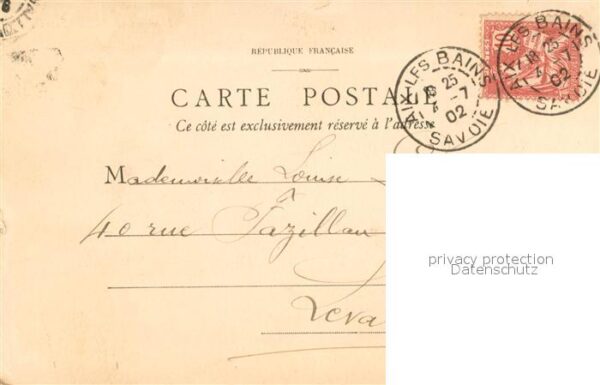 RÉPUBLIQUE FRANÇAISE
AIX-LES-BAINS
25
4-7
02
SAVOIE
AIX-LES-BAINS
25
02
SAVOIE
CARTE POSTALE
Ce côté est exclusivement réservé à l'adresse
Mademoiselle Louise
à
40 rue Fazillau
Leva
privacy protection
Datenschutz